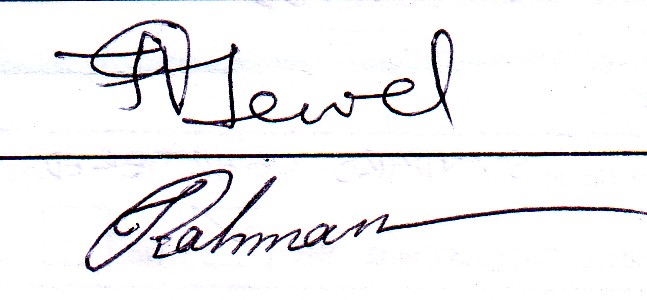 Jewel
Rahman